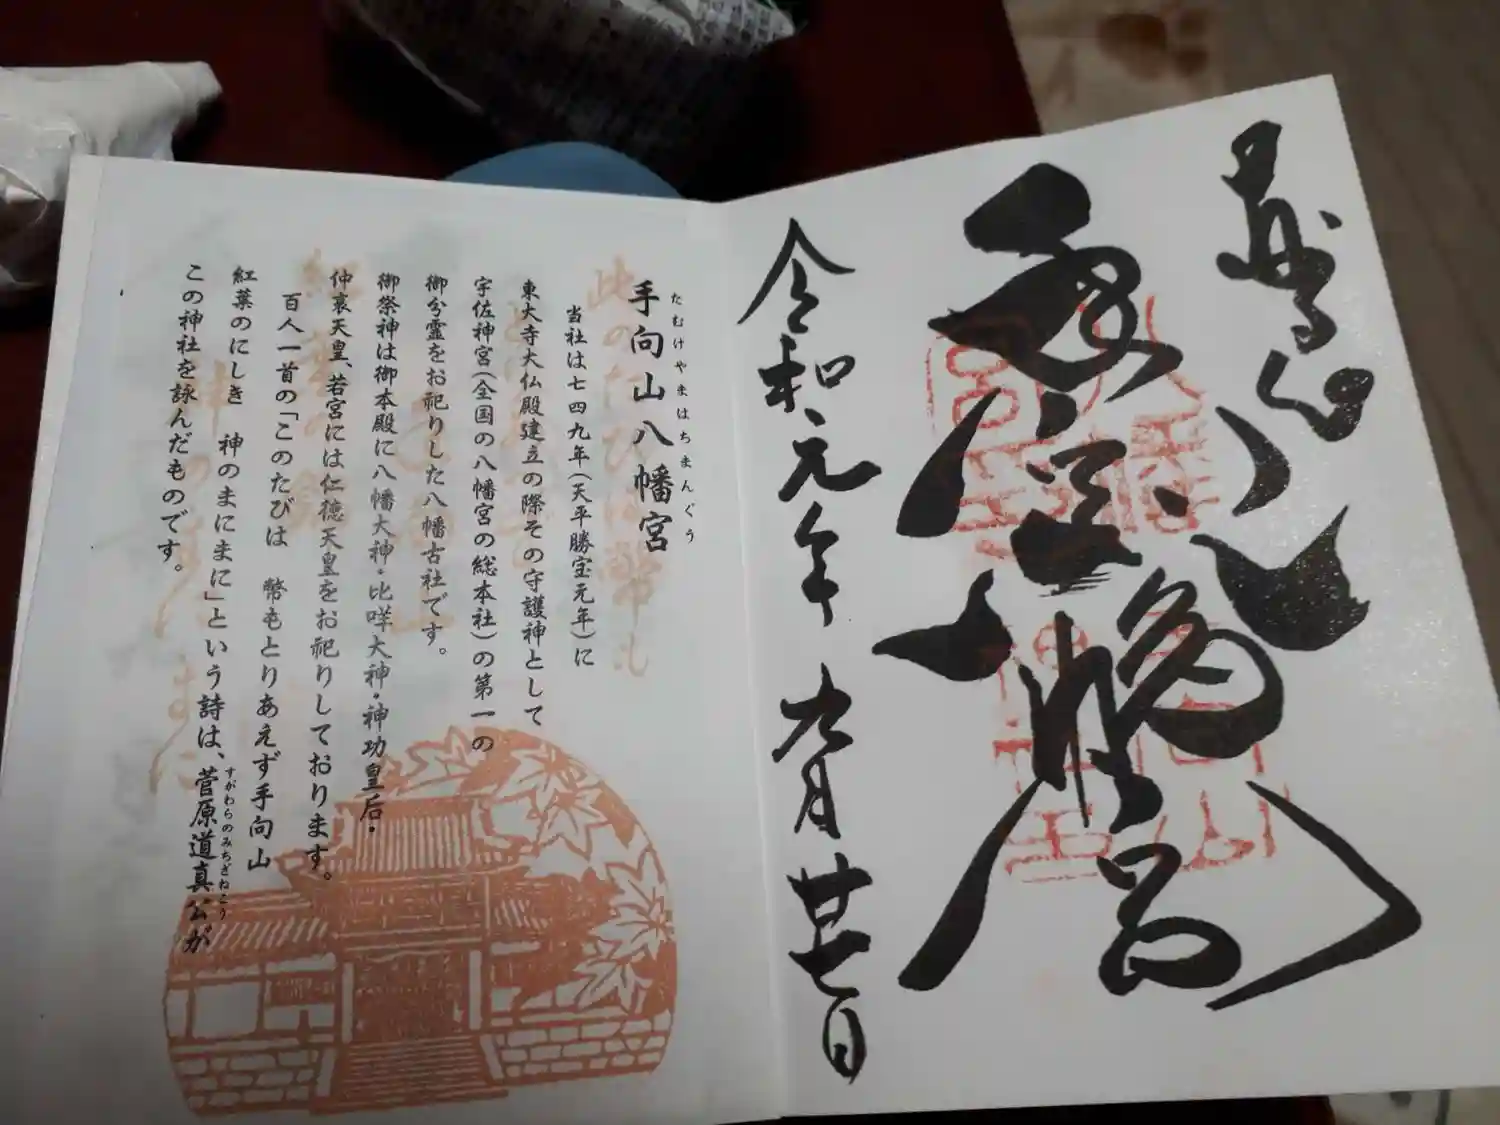 奉拝
八幡宮
令和元年九月廿七日
たむけやまはちまんぐう
手向山八幡宮
当社は七四九年(天平勝宝元年)に
東大寺大仏殿建立の際その守護神として
宇佐神宮(全国の八幡宮の総本社)の第一の
御分霊をお祀りした八幡古社です。
御祭神は御本殿に八幡大神・比咩大神・神功皇后・
仲哀天皇、若宮には仁徳天皇をお祀りしております。
百人一首の「このたびは 幣もとりあえず手向山
紅葉のにしき 神のまにまに」という詩は、菅原道真公が
すがわらのみちざねこう
この神社を詠んだものです。